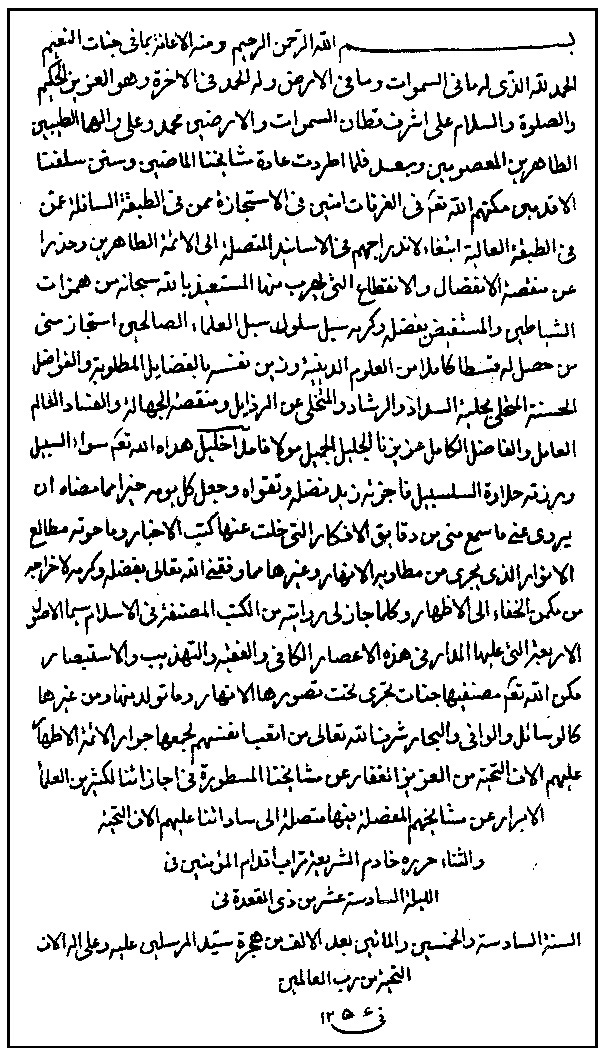 بسم الله الرحمن الرحيم ومنه الاعانة بمافى جنات النعيم
الحمد لله الذى له ما فى السموات وما فى الارض وله الحمد فى الاخرة وهو العزيز الحكيم
والصلوة والسلام على اشرف قطان السموات والارضين محمد وعلى والهما الطيبين
الطاهرين المعصومين وبعد فلما اطردت عادة مشايخنا الماضين وسنن سلفنا
الاقدمين مكنهم الله تعم فى الغرفات امنين فى الاستجازة ممن فى الطبقة السافلة عمن
فى الطبقة العالية ابتغاء لاندراجهم فى الاسانيد المتصلة الى الائمة الطاهرين وحذرا
عن منقصة الانفصال والانقطاع التى يهرب منها المستعيذ بالله سبحانه من همزات
الشياطين والمستفيض بفضله وكرمه سبل سلوك سبل العلماء الصالحين استجاز منى
من حصل له قسطا كاملا من العلوم الدينية وزين نفسه بالفضايل المطلوبة والفواضل
الحسنة المحلى بحلية السداد والرشاد والمتخلى عن الرذايل ومنقصة الجهالة والفساد العالم
العامل والفاضل الكامل عزيزنا الجليل الجميل مولانا ملا خليل هداه الله تعم سواء السبيل
ورزقه حلاوة السلسبيل فاجزته زيد فضله وتقواه وجعل كل يومه خيرا مما مضاه ان
يروى عنى ما سمع منى من دقايق الافكار التى خلت عنها كتب الاخبار وما حوته مطالع
الانوار الذى يجرى من مطاويه الانهار وغيرها مما وفقنى الله تعالى بفضله وكرمه لاخراجه
من مكمن الخفاء الى الاظهار وكلما جاز لى روايته من الكتب المصنفة فى الاسلام سيما الاصول
الاربعة التى عليها المدار فى هذه الاعصار الكافى والفقيه والتهذيب والاستبصار
مكن الله تعم مصنفيها جنات تجرى تحت قصورها الانهار وما تولد منها ومن غيرها
كالوسائل والوافى والبحار شرف الله تعالى من اتعب انفسهم لجمعها جوار الائمة الاطهار
عليهم الاف التحية من العزيز الغفار عن مشايخنا المسطورة فى اجازاتنا لكثير من العلماء
الابرار عن مشايخهم المفصلة فيها متصلة الى ساداتنا عليهم الاف التحية
والثناء حرره خادم الشريعة تراب اقدام المؤمنين فى
الليلة السادسة عشر من ذى القعدة فى
السنة السادسة والخمسين والماتين بعد الالف من هجرة سيد المرسلين عليه وعلى اله الاف
التحية من رب العالمين
فى ١٢٥٦